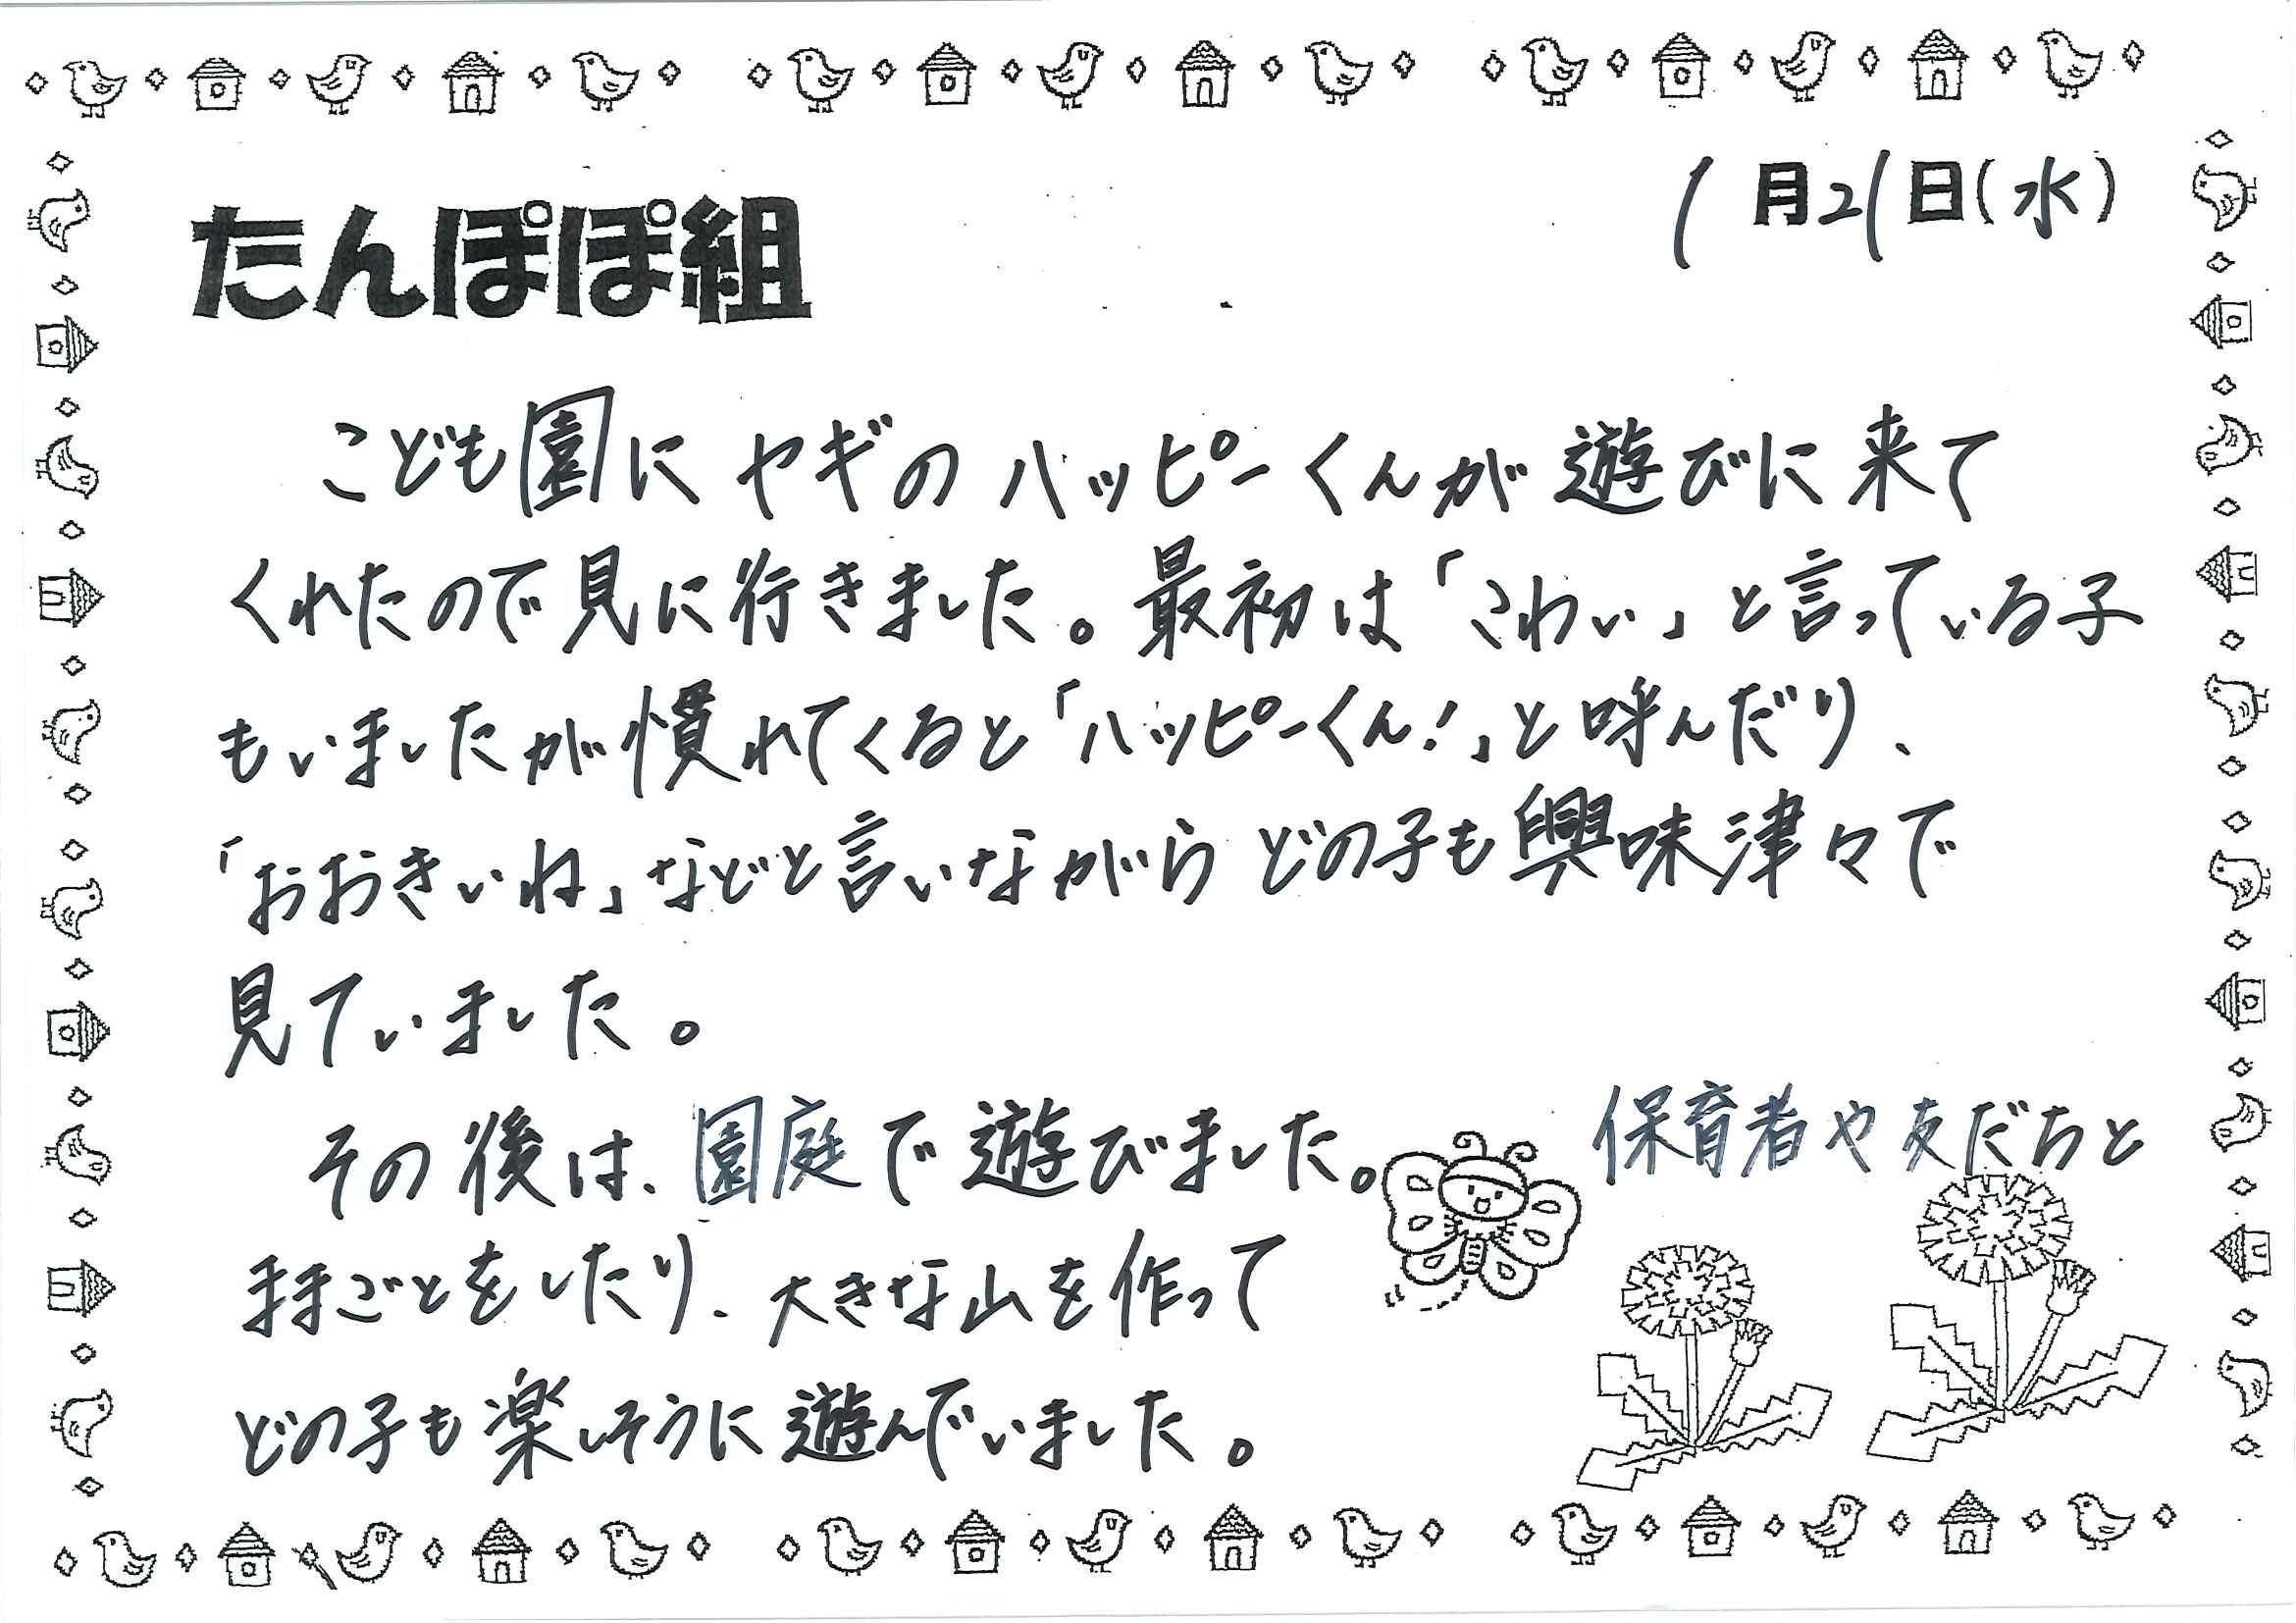 1月21日(水)
たんぽぽ組
こども園にヤギのハッピーくんが遊びに来て
くれたので見に行きました。最初は「こわい」と言っている子
もいましたが慣れてくると「ハッピーくん!」と呼んだり、
「おおきいね」などと言いながらどの子も興味津々で
見ていました。
その後は、園庭で遊びました。保育者や友だちと
ままごとをしたり、大きな山を作って
どの子も楽しそうに遊んでいました。